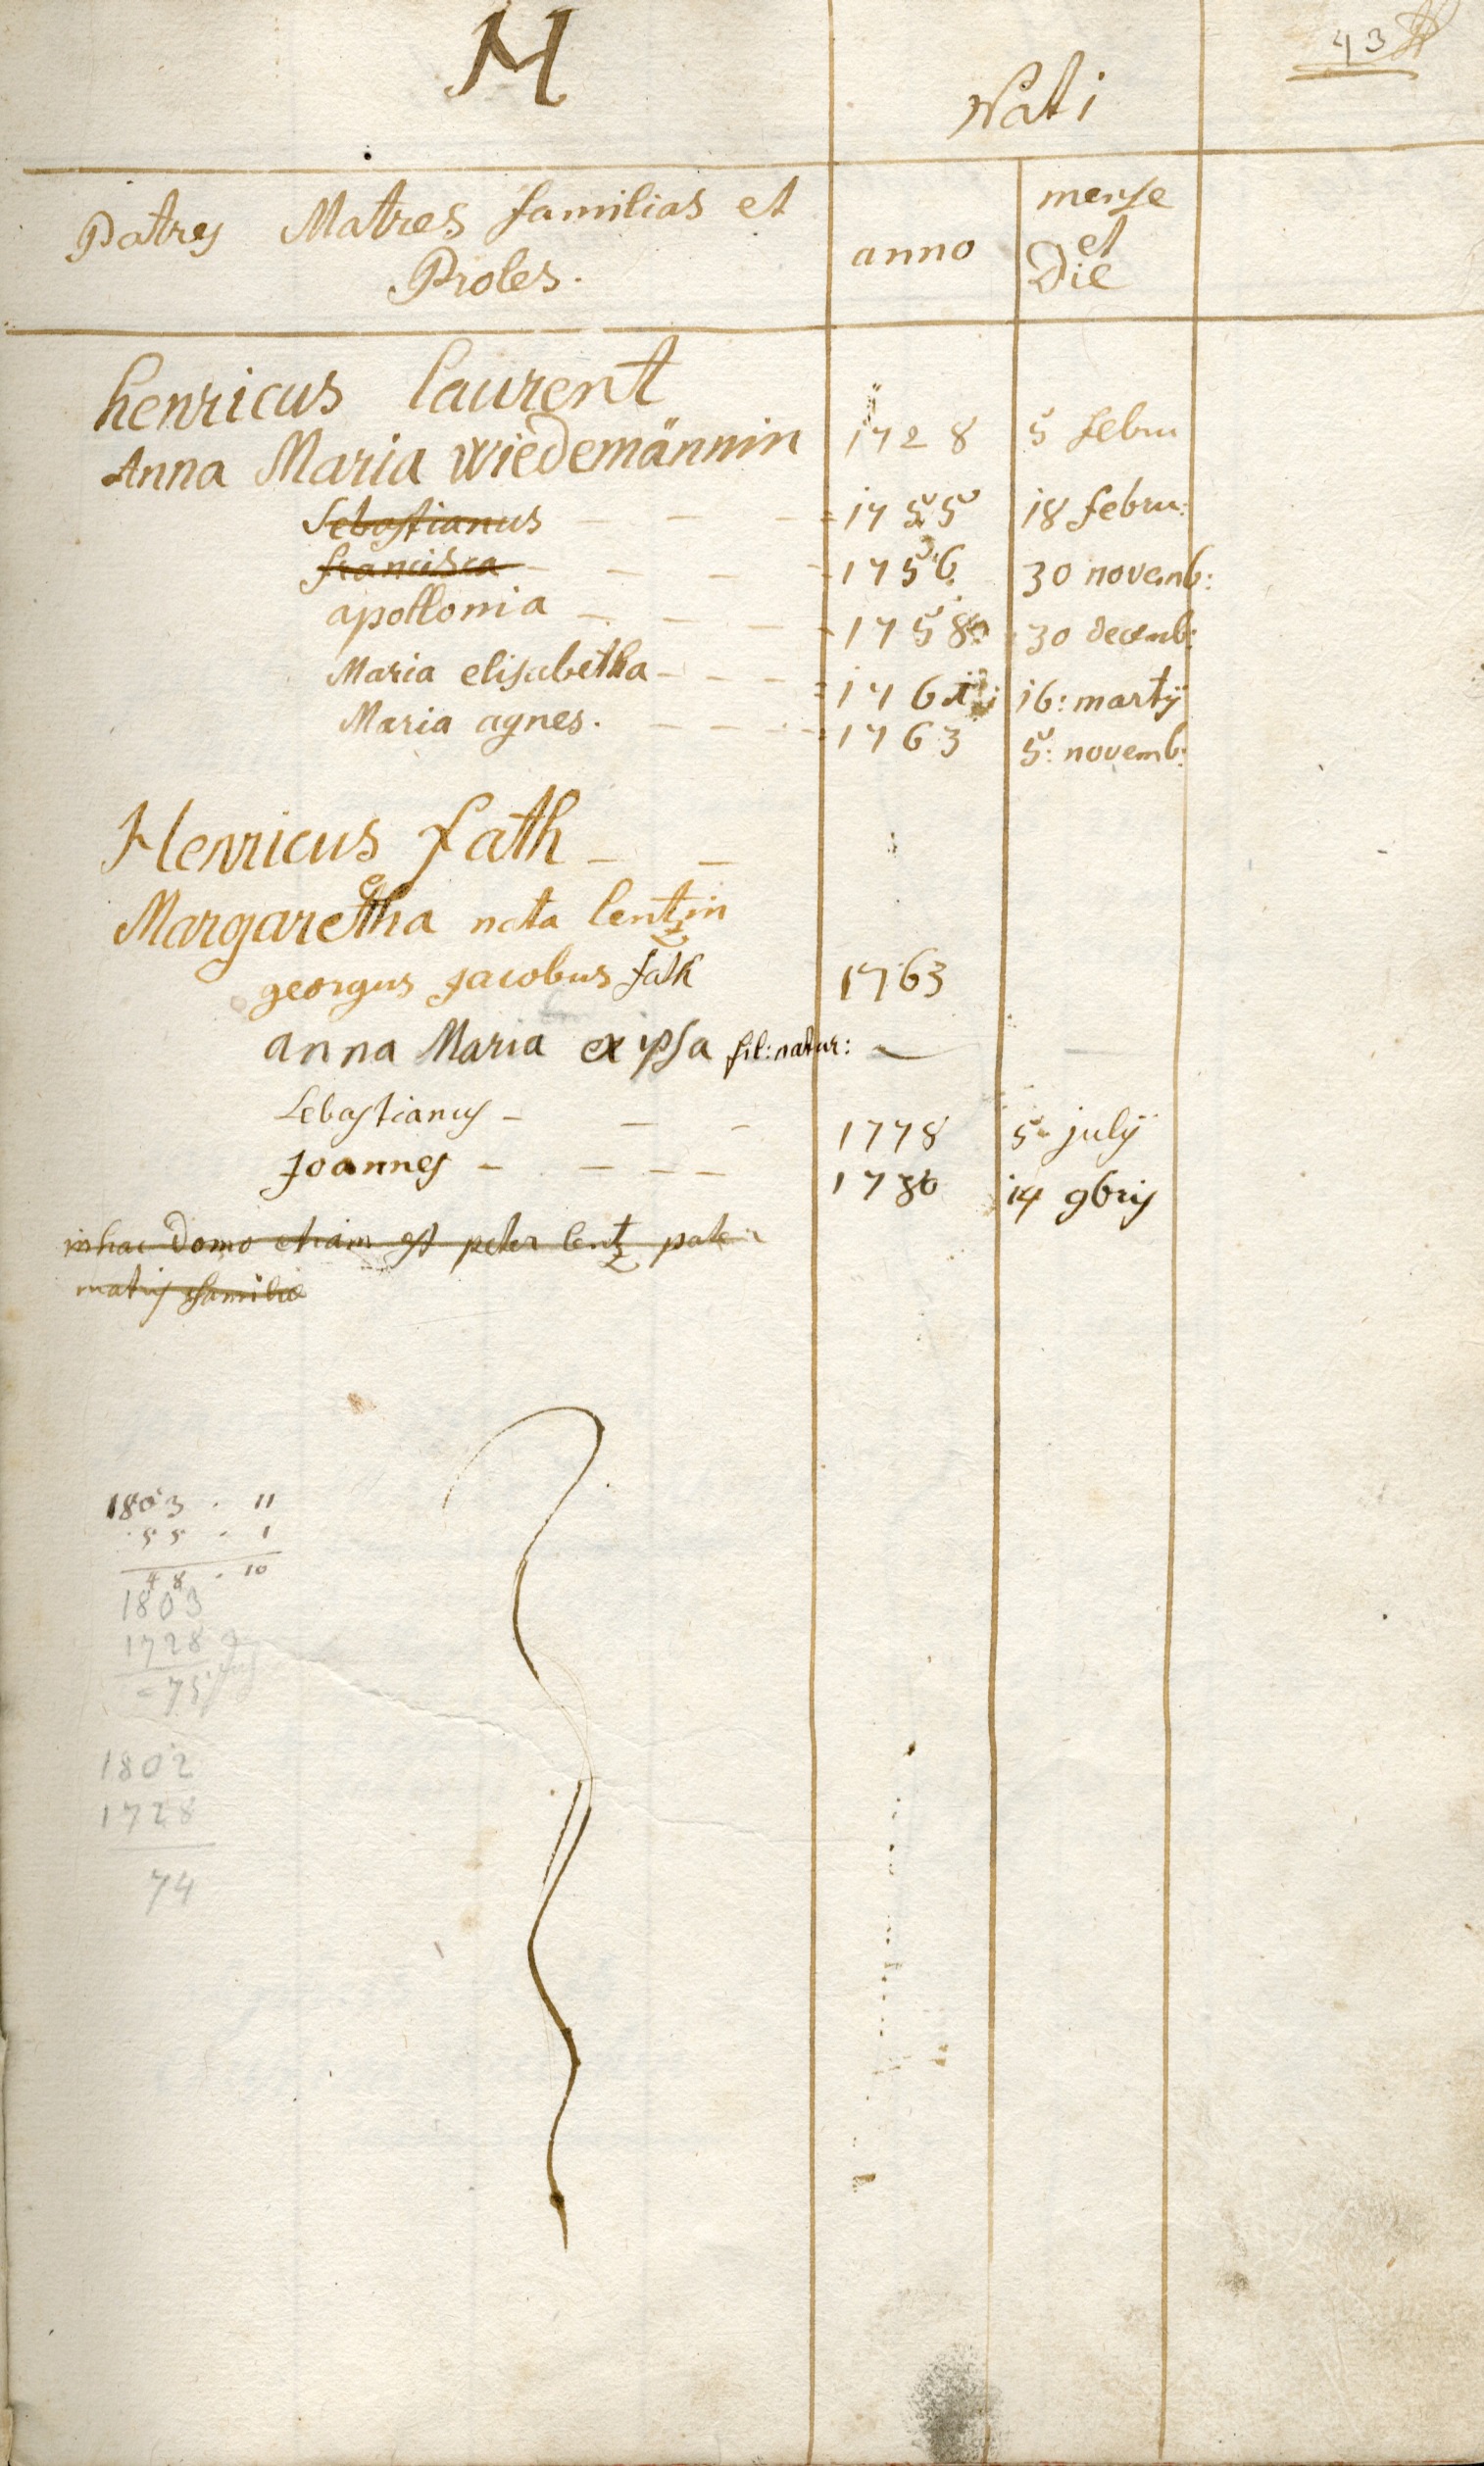 H
43
Nati
Patres Matres familias et
Proles.
anno
mense
et
Die
henricus laurent
Anna Maria Wiedemännin 1728 5 febru
Sebastianus - - - 1755 18 febru:
francisca - - - - 1756 30 novemb:
apollonia - - - - 1758 30 decemb:
Maria elisabetha - - - 176 16: martÿ
Maria agnes. - - - - 1763 5: novemb:
Henricus fath - -
Margaretha nata lentzin
georgus Jacobus fath 1763
anna Maria ex ipsa fil: natur: -
Sebastianus - - - 1778 5 - julÿ
Joannes - - - - 1780 14 9bris
in hac Domo etiam est peter lentz pater
matris familiae
1803 . 11
55 . 1
48 . 10
1803
1728
75
1802
1728
74